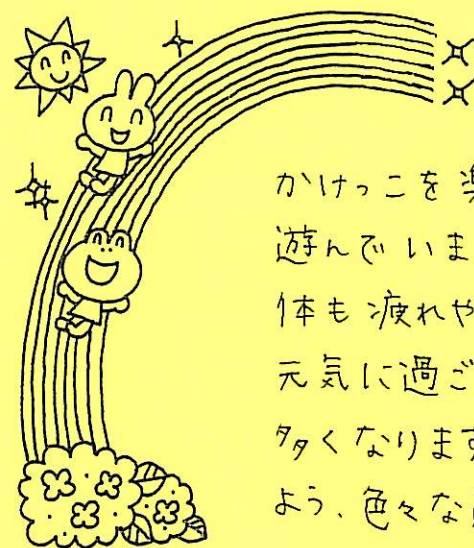 かけっこを楽
遊んでいま
体も疲れや
元気に過ご
多くなります
よう、色々な